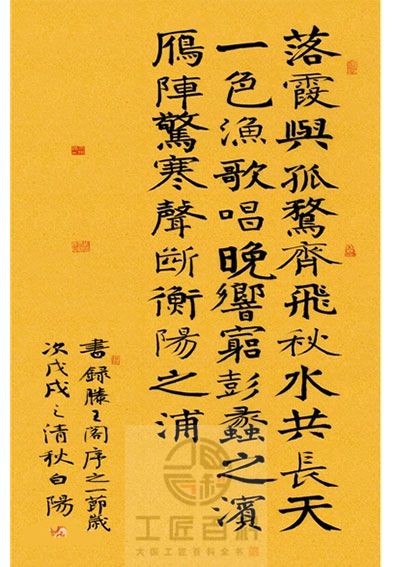 落霞與孤鶩齊飛秋水共長天
一色漁歌唱晚響窮彭蠡之濱
鴈陣驚寒聲斷衡陽之浦
書錄滕王閣序之一節歲
次戊戌之清秋白陽
工匠百科
大国工匠百科全书